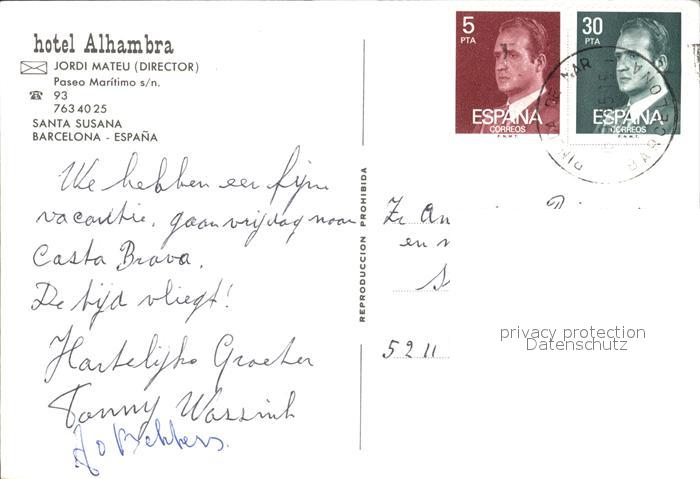 hotel Alhambra
JORDI MATEU (DIRECTOR)
Paseo Marítimo s/n.
93
763 40 25
SANTA SUSANA
BARCELONA - ESPAÑA
We hebben een fijne
vacantie, gaan vrijdag naar
Costa Brava.
De tijd vliegt!
Hartelijke Groeten
Tonny Wassink
Jo Bekkers.
REPRODUCCION PROHIBIDA
5
PTA
ESPAÑA
CORREOS
F.N.M.T.
30
PTA
ESPAÑA
CORREOS
F.N.M.T.
DE MAR
BARCELONA
Zr An
en
5211
privacy protection
Datenschutz